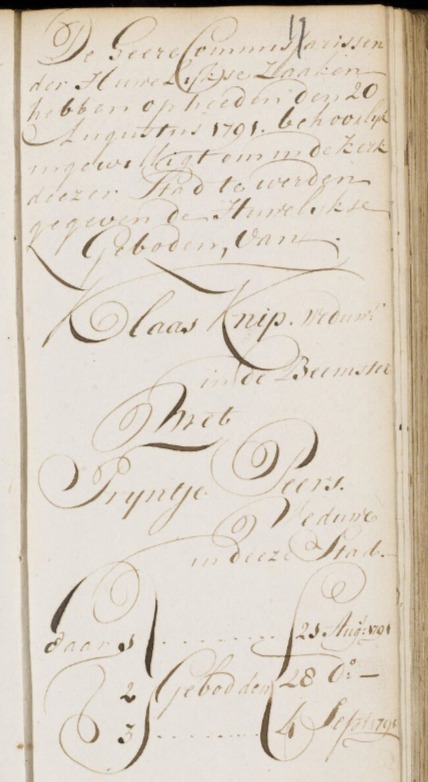 De Heere Commissarissen
der Huwelijkse Zaaken
hebben op heeden den 20
Augustus 1791. behoorlijk
ingewilligt om in de Kerk
deezer Stad te werden
gegeven de Huwelijkse
Geboden, Van
Klaas Knip. Weduwr
in de Beemster
Met
Pryntje Peers.
Weduwe
in deeze Stad
Haar 1 ......... 21 Augs 1791
2 Gebod den 28 do —
3 ......... 4 Sept 1791